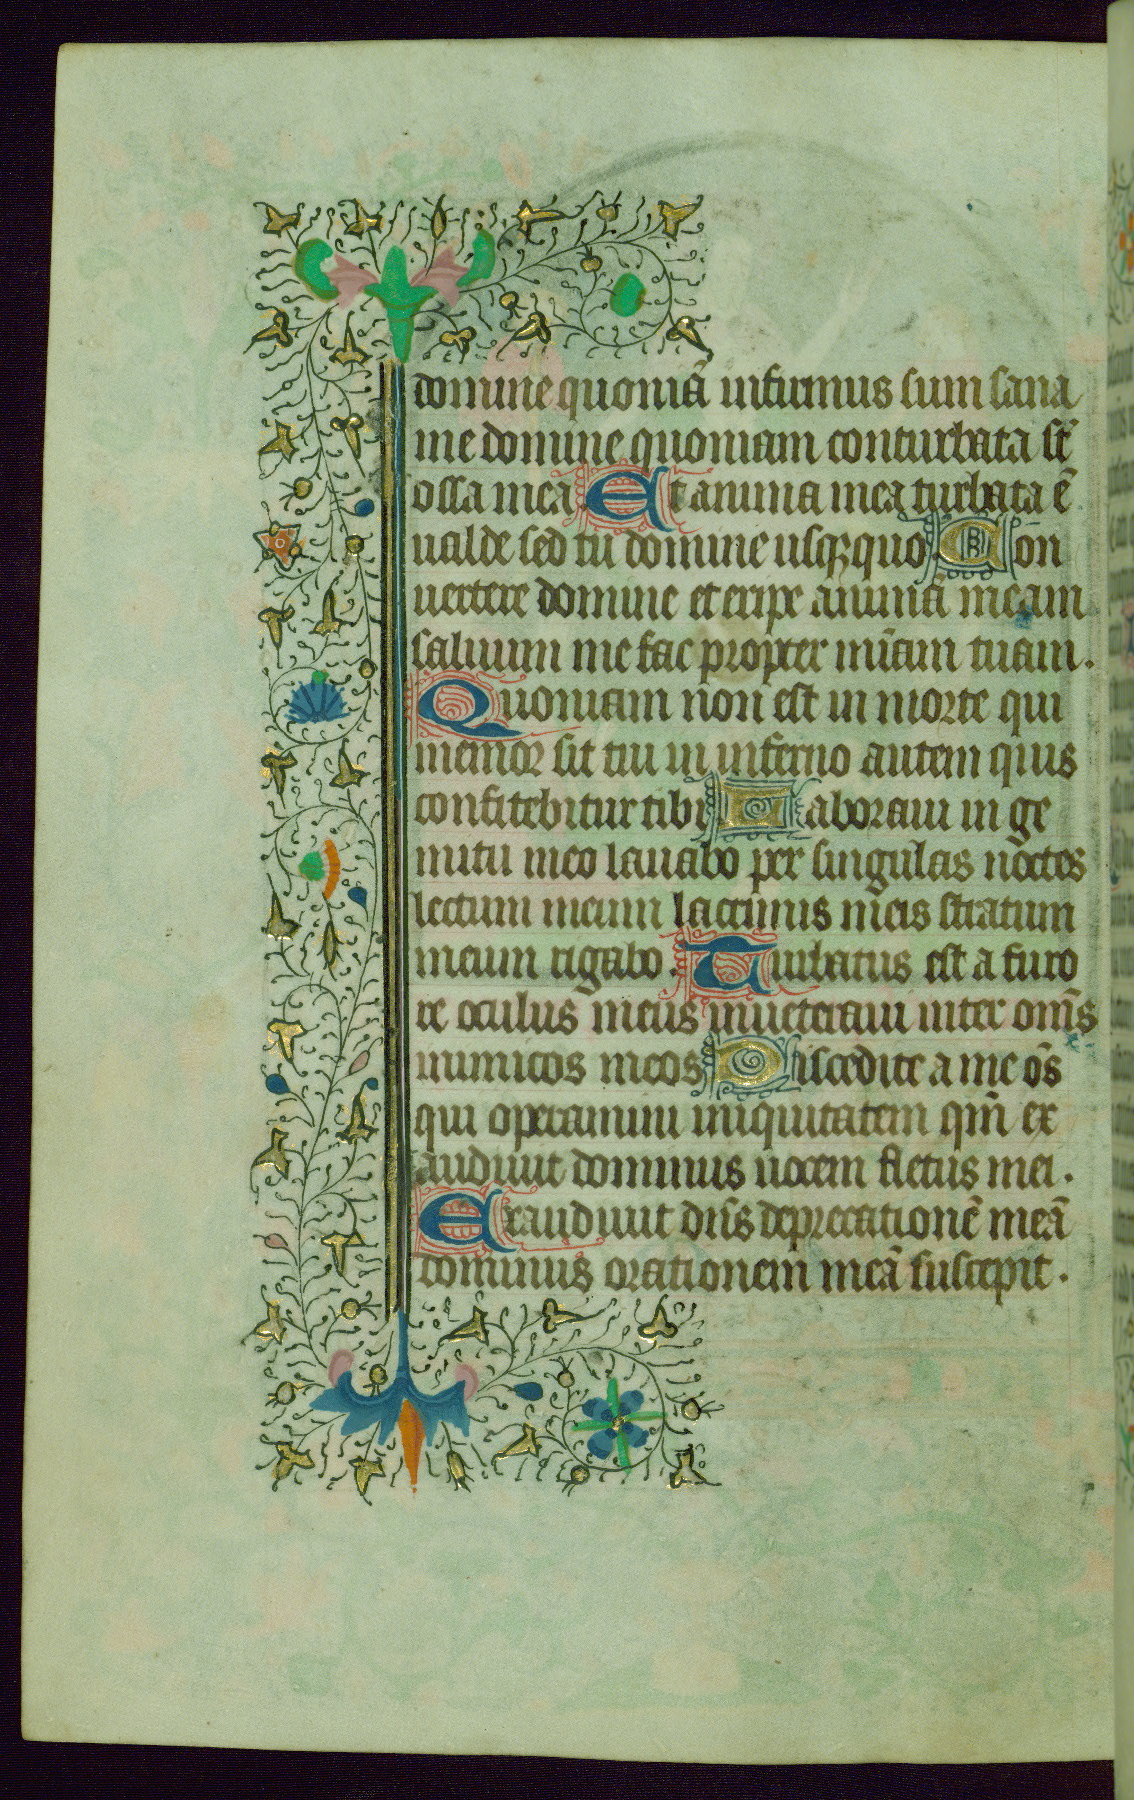 domine quoniā infirmus sum sana
me domine quoniam conturbata st̄
ossa mea. Et anima mea turbata ē
ualde sed tu domine usq;quo. Con
uertere domine et eripe animā meam
saluum me fac propter mīam tuam.
Quoniam non est in morte qui
memor sit tui in inferno autem quis
confitebitur tibi Laboraui in ge
mitu meo lauabo per singulas noctes
lectum meum lacrimis meis stratum
meum rigabo. Turbatus est a furo
re oculus meus inueteraui inter om̄s
inimicos meos Discedite a me oīs
qui operamini iniquitatem qm̄ ex
audiuit dominus uocem fletus mei.
Exaudiuit dn̄s deprecationē meā
dominus orationem meā suscepit.